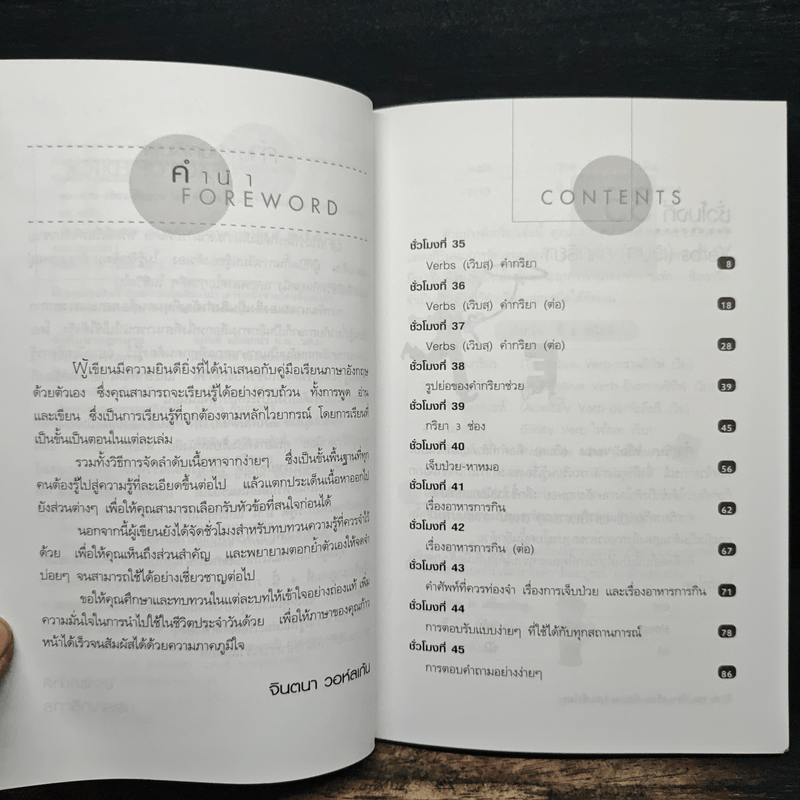 คำนำ
FOREWORD
ผู้เขียนมีความยินดียิ่งที่ได้นำเสนอกับคู่มือเรียนภาษาอังกฤษ
ด้วยตัวเอง ซึ่งคุณสามารถจะเรียนรู้ได้อย่างครบถ้วน ทั้งการพูด อ่าน
และเขียน ซึ่งเป็นการเรียนรู้ที่ถูกต้องตามหลักไวยากรณ์ โดยการเรียนที่
เป็นขั้นเป็นตอนในแต่ละเล่ม
รวมทั้งวิธีการจัดลำดับเนื้อหาจากง่ายๆ ซึ่งเป็นขั้นพื้นฐานที่ทุก
คนต้องรู้ไปสู่ความรู้ที่ละเอียดขึ้นต่อไป แล้วแตกประเด็นเนื้อหาออกไป
ยังส่วนต่างๆ เพื่อให้คุณสามารถเลือกรับหัวข้อที่สนใจก่อนได้
นอกจากนี้ผู้เขียนยังได้จัดชั่วโมงสำหรับทบทวนความรู้ที่ควรจำไว้
ด้วย เพื่อให้คุณเห็นถึงส่วนสำคัญ และพยายามตอกย้ำตัวเองให้จดจำ
บ่อยๆ จนสามารถใช้ได้อย่างเชี่ยวชาญต่อไป
ขอให้คุณศึกษาและทบทวนในแต่ละบทให้เข้าใจอย่างถ่องแท้ เพิ่ม
ความมั่นใจในการนำไปใช้ในชีวิตประจำวันด้วย เพื่อให้ภาษาของคุณก้าว
หน้าได้เร็วจนสัมผัสได้ด้วยความภาคภูมิใจ
จินตนา วอห์ลเก้น
CONTENTS
ชั่วโมงที่ 35
Verbs (เวิบสฺ) คำกริยา 8
ชั่วโมงที่ 36
Verbs (เวิบสฺ) คำกริยา (ต่อ) 18
ชั่วโมงที่ 37
Verbs (เวิบสฺ) คำกริยา (ต่อ) 28
ชั่วโมงที่ 38
รูปย่อของคำกริยาช่วย 39
ชั่วโมงที่ 39
กริยา 3 ช่อง 45
ชั่วโมงที่ 40
เจ็บป่วย-หาหมอ 56
ชั่วโมงที่ 41
เรื่องอาหารการกิน 62
ชั่วโมงที่ 42
เรื่องอาหารการกิน (ต่อ) 67
ชั่วโมงที่ 43
คำศัพท์ที่ควรท่องจำ เรื่องการเจ็บป่วย และเรื่องอาหารการกิน 71
ชั่วโมงที่ 44
การตอบรับแบบง่ายๆ ที่ใช้ได้กับทุกสถานการณ์ 78
ชั่วโมงที่ 45
การตอบคำถามอย่างง่ายๆ 86